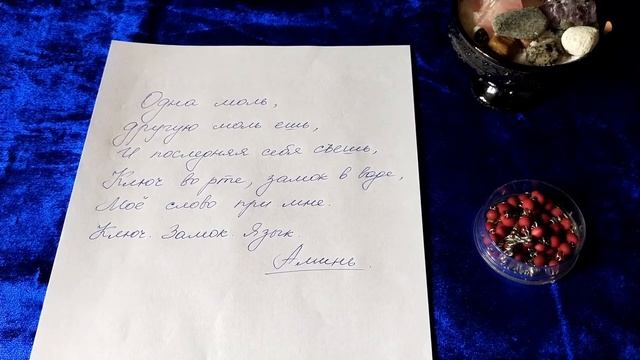 Одна моль,
другую моль ешь,
И последняя себя съешь,
Ключ во рте, замок в воде,
Моё слово при мне.
Ключ. Замок. Язык.
Аминь.